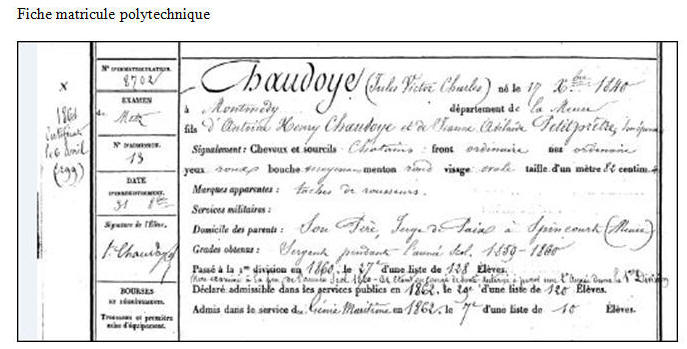 Fiche matricule polytechnique
X
1861
6 avril
(299)
N° D'IMMATRICULATION.
8702
EXAMEN
de Metz
N° D'ADMISSION.
13
DATE
D'ENREGISTREMENT.
31 8bre
Signature de l'Élève.
Chaudoye
BOURSES
ET TROUSSEAUX.
Trousseau et première
mise d'équipement.
Chaudoye (Jules Victor Charles) né le 17 Xbre 1840
à Montmédy département de la Meuse
fils d'Antoine Henry Chaudoye et de Jeanne Adélaïde Petitprêtre,
Signalement : Cheveux et sourcils Chatains : front ordinaire nez ordinaire
yeux roux bouche moyenne menton rond visage ovale taille d'un mètre 82 centim.
Marques apparentes : taches de rousseurs.
Services militaires :
Domicile des parents : Son Père, Juge de Paix à Spincourt (Meuse)
Grades obtenus : Sergent pendant l'année Scol. 1859-1860
Passé à la 1re division en 1860, le 37e d'une liste de 128 Élèves.
l'année Scol. 1860- l'Année dans la 1re Division
Déclaré admissible dans les services publics en 1862, le 29e d'une liste de 120 Élèves.
Admis dans le service du Génie Maritime en 1862, le 7e d'une liste de 10 Élèves.